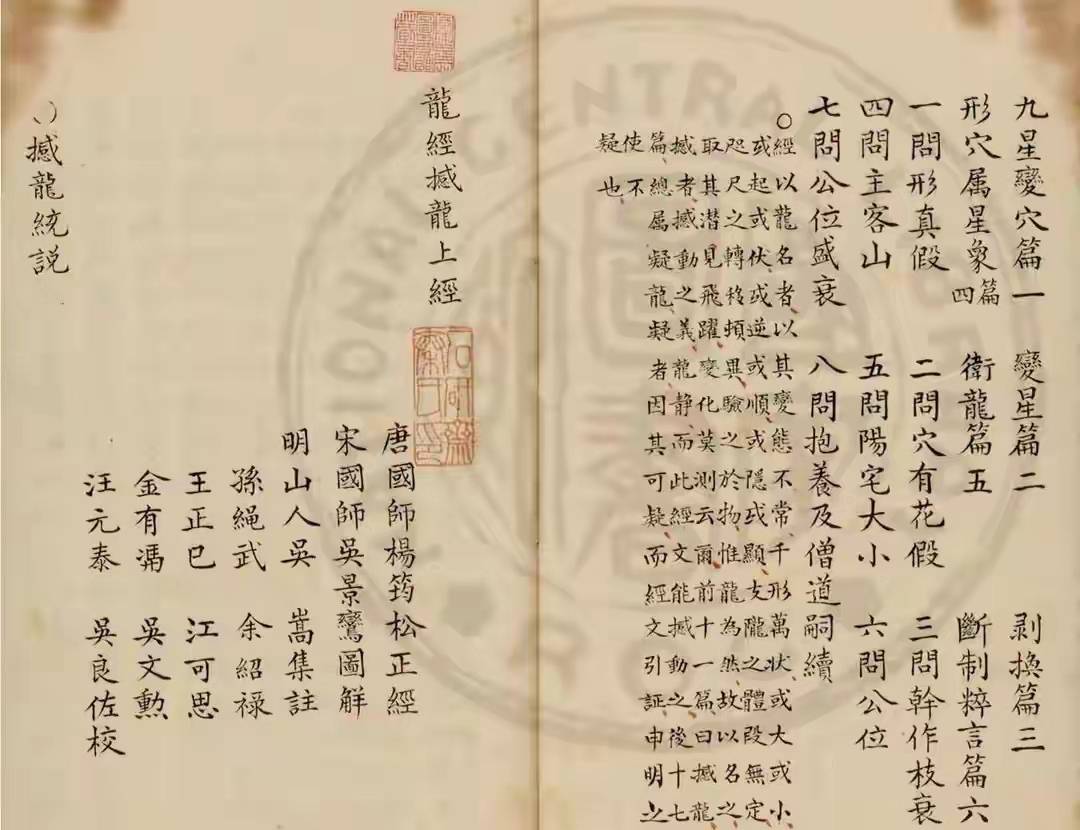 九星變穴篇一 變星篇二 剥換篇三
形穴属星象篇四 衛龍篇五 斷制粹言篇六
一問形真假 二問穴有花假 三問幹作枝衰
四問主客山 五問陽宅大小 六問公位
七問公位盛衰 八問抱養及僧道嗣續
○經以龍名者以其變態不常千形萬狀或大或小
或起或伏或逆或順或隱或顯支隴之體段無定
咫尺之轉移頓異驗之於物惟龍為然故以名之
取其潛見飛躍變化莫測云爾前十一篇曰撼龍
撼者撼動之義龍静而此經文能撼動之後十七
篇總属疑龍疑者因其可疑而經文引証申明之
使不
疑也
龍經撼龍上經
石研齋秦氏印
唐國師楊筠松正經
宋國師吳景鸞圖解
明山人吳 嵩集註
孫繩武 余紹祿
王正巳 江可思
金有 吳文勲
汪元泰 吳良佐校
撼龍統說
IONAL CENTRA